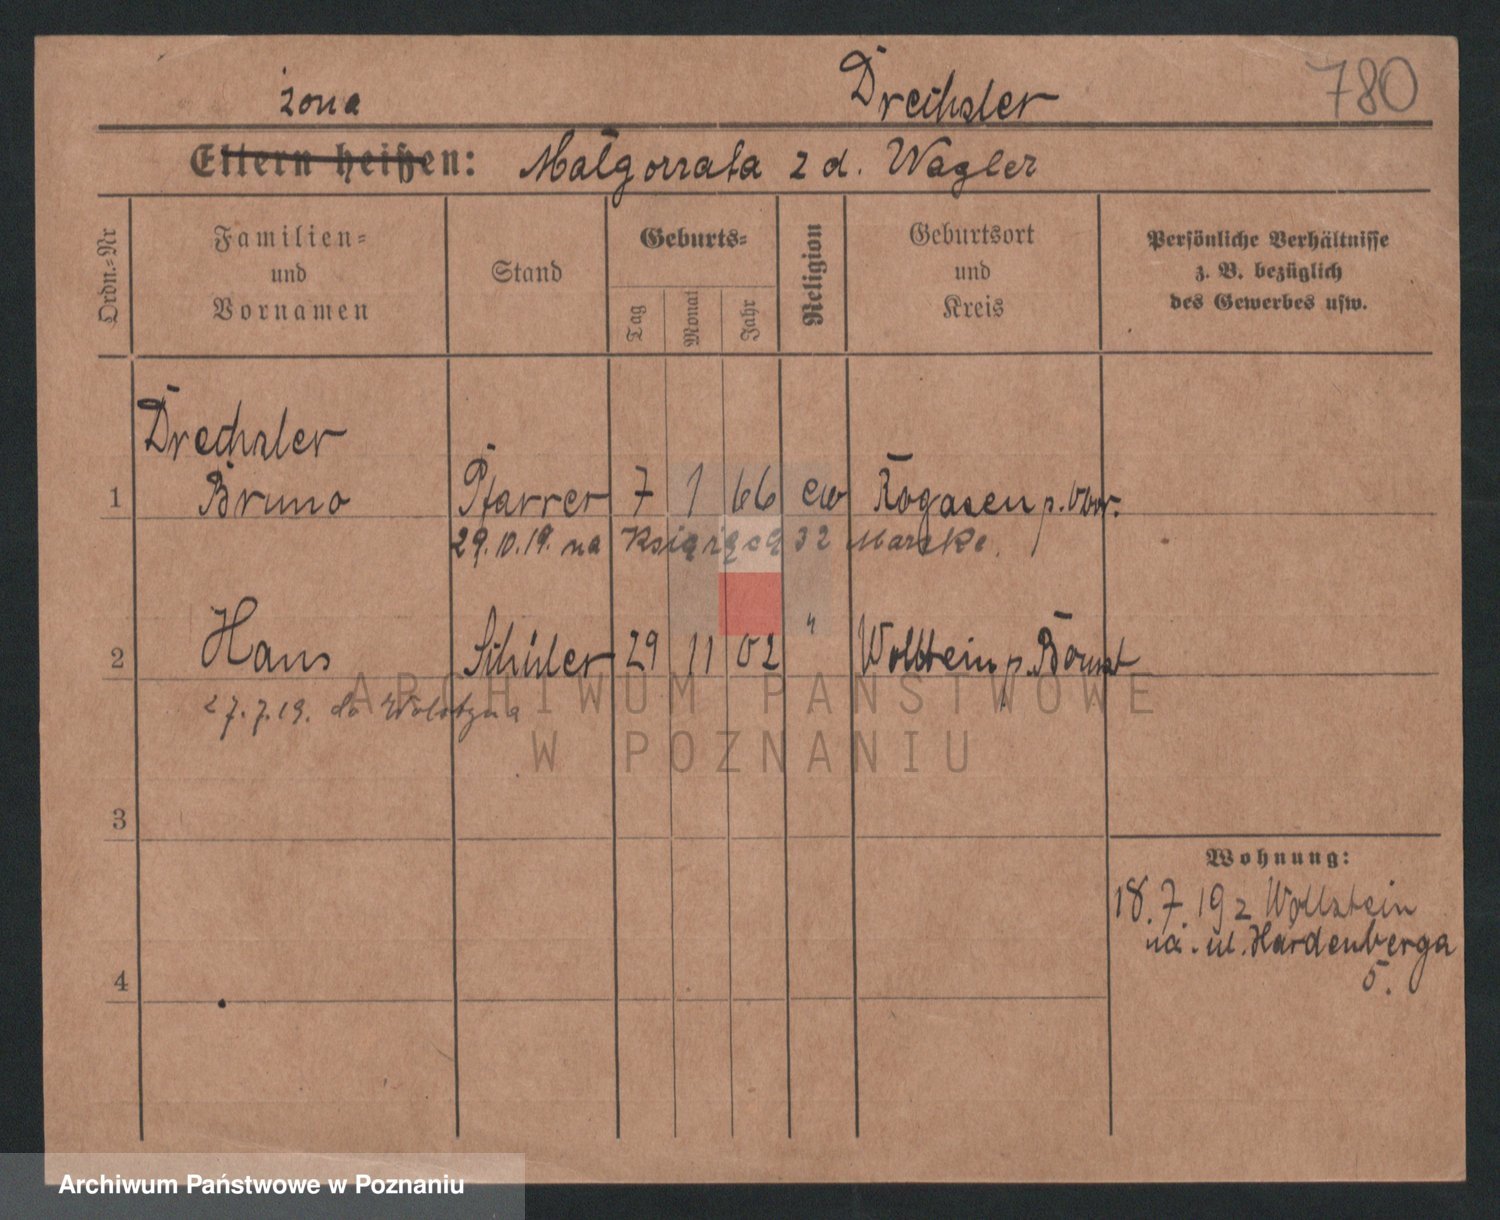 żona Drechsler 780
Eltern heißen: Małgorzata z d. Wagler
Ordn.=Nr
Familien=
und
Vornamen
Stand
Geburts=
Tag
Monat
Jahr
Religion
Geburtsort
und
Kreis
Persönliche Verhältnisse
z. B. bezüglich
des Gewerbes usw.
Drechsler
1 Bruno Pfarrer 7 1 66 ew Rogasen p.
29.10.19. na Książęcą 32
2 Hans Schüler 29 11 02 " Wollstein p. Bomst
27.7.19. do
3
4
Wohnung:
18.7.19 z Wollstein
na. ul. Hardenberga
5.
ARCHIWUM PAŃSTWOWE
W POZNANIU
Archiwum Państwowe w Poznaniu